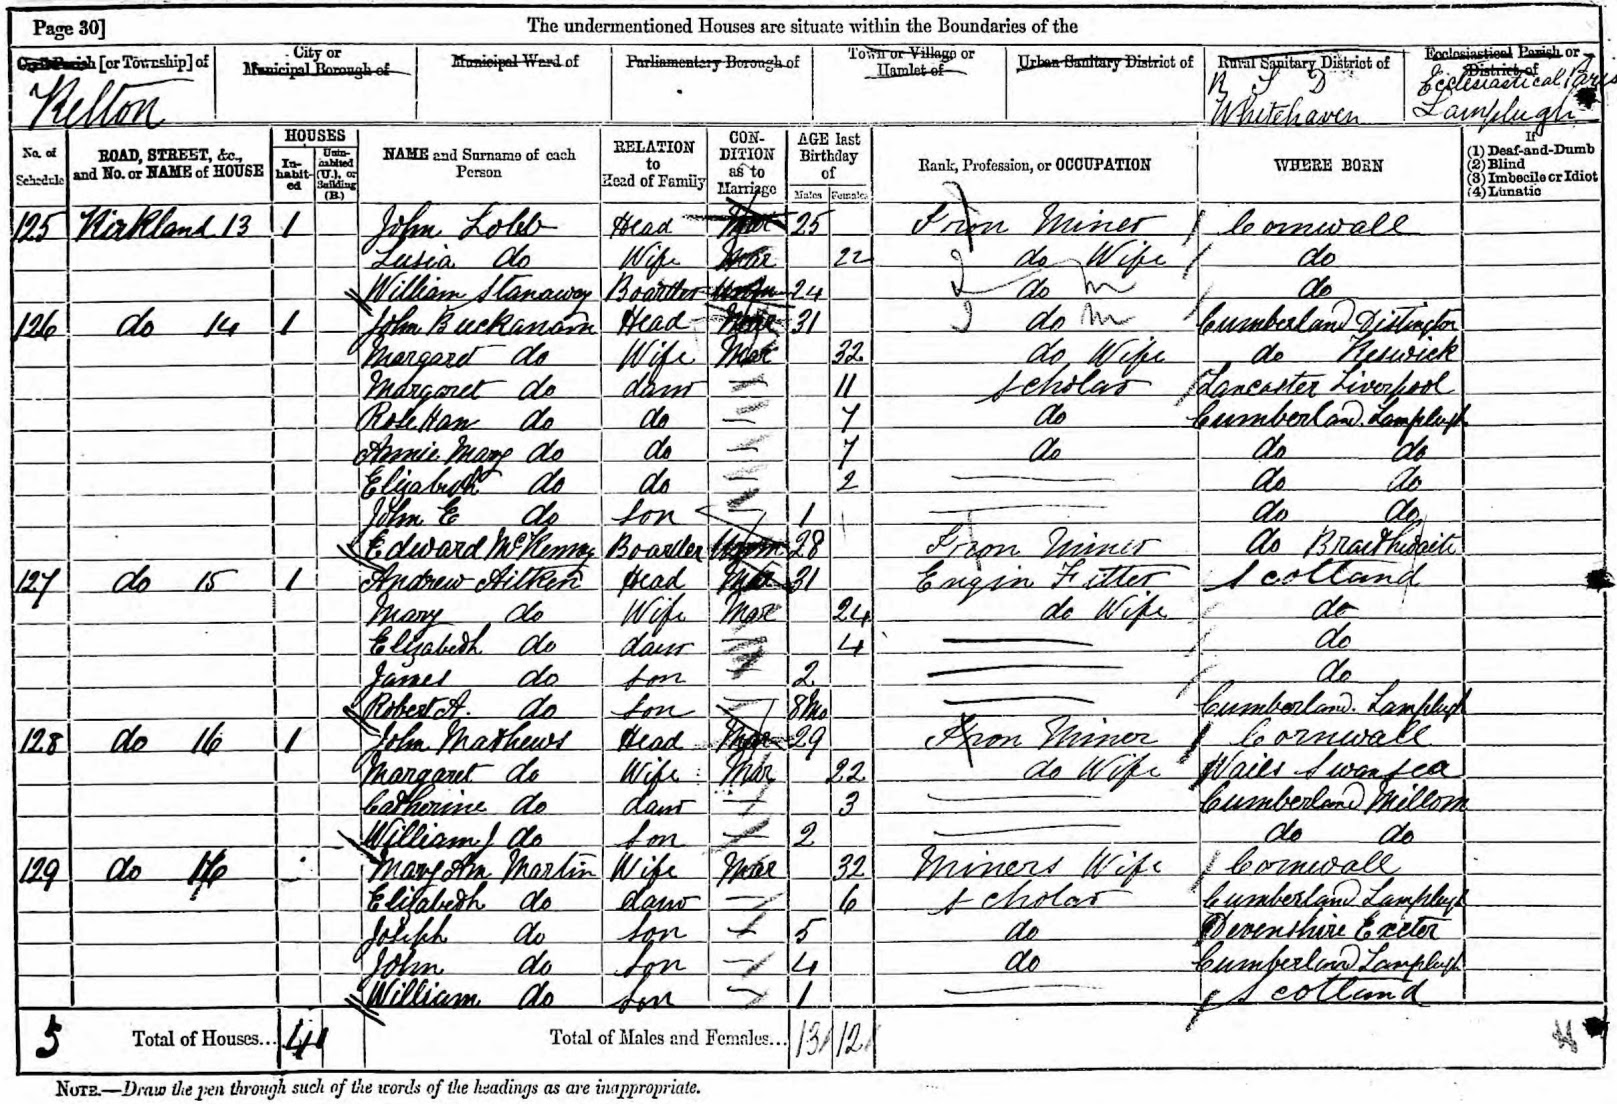 Page 30] The undermentioned Houses are situate within the Boundaries of the
Civil Parish [or Township] of City or Municipal Borough of Municipal Ward of Parliamentary Borough of Town or Village or Hamlet of Urban Sanitary District of Rural Sanitary District of Ecclesiastical Parish or District of
Kelton R S D Whitehaven Ecclesiastical Paris Lamplugh
No. of Schedule ROAD, STREET, &c., and No. or NAME of HOUSE HOUSES In-habit-ed Unin-habited (U.), or Building (B.) NAME and Surname of each Person RELATION to Head of Family CON-DITION as to Marriage AGE last Birthday of Males Females Rank, Profession, or OCCUPATION WHERE BORN If (1) Deaf-and-Dumb (2) Blind (3) Imbecile or Idiot (4) Lunatic
125 Kirkland 13 1 John Lobb Head Mar 25 Iron Miner Cornwall
Lusia do Wife Mar 22 do Wife do
William Stanaway Boarder Unm 24 do m do
126 do 14 1 John Buckanam Head Mar 31 do m Cumberland Distington
Margaret do Wife Mar 32 do Wife do Keswick
Margaret do daur 11 Scholar Lancaster Liverpool
Rose Han do do 7 do Cumberland Lamplugh
Annie Mary do do 7 do do do
Elizabeth do do 2 do do
John E do son 1 do do
Edward McKenny Boarder Unm 28 Iron Miner do Braithwaite
127 do 15 1 Andrew Aitken Head Mar 31 Engin Fitter Scotland
Mary do Wife Mar 24 do Wife do
Elizabeth do daur 4 do
James do son 2 do
Robert A. do son 8 Mo Cumberland. Lamplugh
128 do 16 1 John Mathews Head Mar 29 Iron Miner Cornwall
Margaret do Wife Mar 22 do Wife Wailes Swansea
Catherine do daur 3 Cumberland Millom
William J do son 2 do do
129 do 16 Mary Ann Martin Wife Mar 32 Miners Wife Cornwall
Elizabeth do daur 6 Scholar Cumberland Lamplugh
Joseph do son 5 do Devenshire Exeter
John do son 4 do Cumberland Lamplugh
William do son 1 Scotland
5 Total of Houses... 4 Total of Males and Females... 13 12
NOTE.—Draw the pen through such of the words of the headings as are inappropriate.